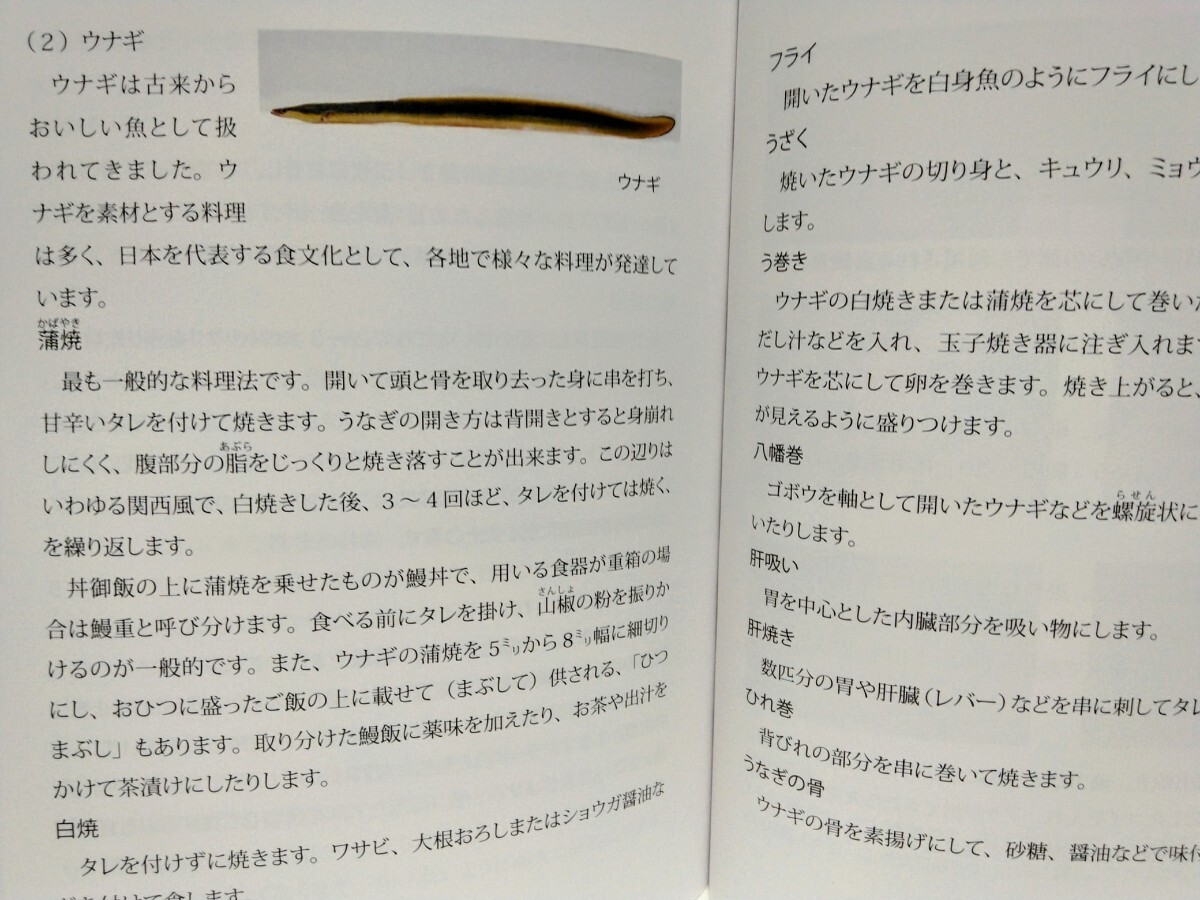 （２）ウナギ
ウナギは古来から
おいしい魚として扱
われてきました。ウ
ナギを素材とする料理
は多く、日本を代表する食文化として、各地で様々な料理が発達して
います。
ウナギ
かばやき
蒲焼
最も一般的な料理法です。開いて頭と骨を取り去った身に串を打ち、
甘辛いタレを付けて焼きます。うなぎの開き方は背開きとすると身崩れ
あぶら
しにくく、腹部分の脂をじっくりと焼き落すことが出来ます。この辺りは
いわゆる関西風で、白焼きした後、３～４回ほど、タレを付けては焼く、
を繰り返します。
丼御飯の上に蒲焼を乗せたものが鰻丼で、用いる食器が重箱の場
さんしょ
合は鰻重と呼び分けます。食べる前にタレを掛け、山椒の粉を振りか
けるのが一般的です。また、ウナギの蒲焼を５㍉から８㍉幅に細切り
にし、おひつに盛ったご飯の上に載せて（まぶして）供される、「ひつ
まぶし」もあります。取り分けた鰻飯に薬味を加えたり、お茶や出汁を
かけて茶漬けにしたりします。
白焼
タレを付けずに焼きます。ワサビ、大根おろしまたはショウガ醤油な
どを付けて食します。
フライ
開いたウナギを白身魚のようにフライにし
うざく
焼いたウナギの切り身と、キュウリ、ミョウ
します。
う巻き
ウナギの白焼きまたは蒲焼を芯にして巻いた
だし汁などを入れ、玉子焼き器に注ぎ入れます
ウナギを芯にして卵を巻きます。焼き上がると、
が見えるように盛りつけます。
八幡巻
らせん
ゴボウを軸として開いたウナギなどを螺旋状に
いたりします。
肝吸い
胃を中心とした内臓部分を吸い物にします。
肝焼き
数匹分の胃や肝臓（レバー）などを串に刺してタレ
ひれ巻
背びれの部分を串に巻いて焼きます。
うなぎの骨
ウナギの骨を素揚げにして、砂糖、醤油などで味付